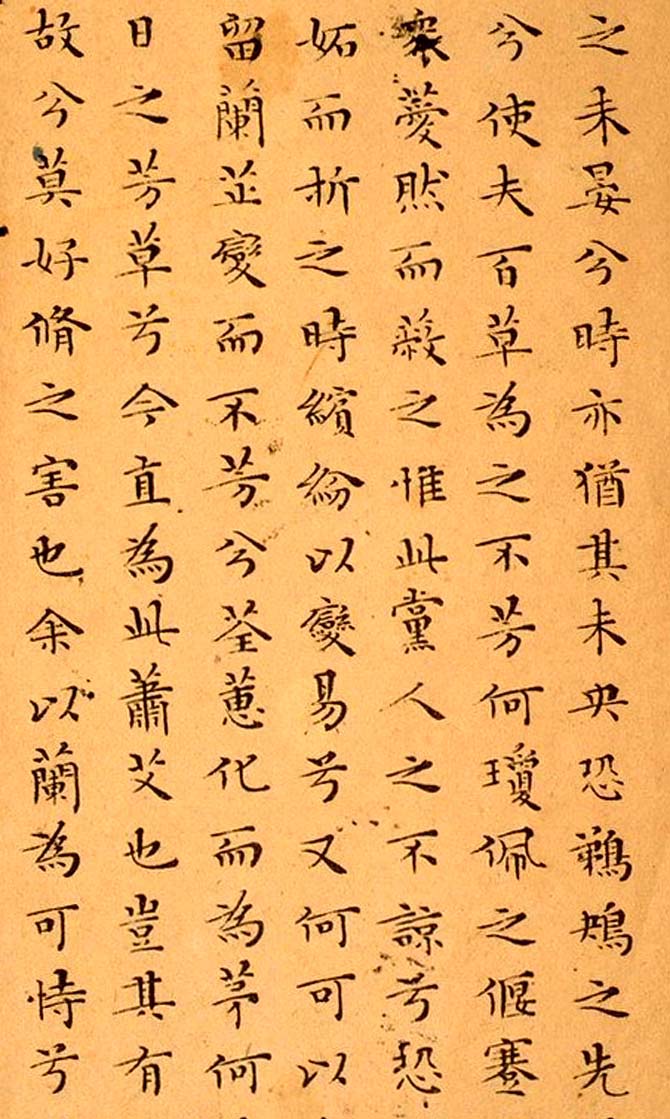 之未晏兮時亦猶其未央恐鵜鴂之先
兮使夫百草為之不芳何瓊佩之偃蹇
衆薆然而蔽之惟此黨人之不諒兮恐
妬而折之時繽紛以變易兮又何可以
留蘭芷變而不芳兮荃蕙化而為茅何
日之芳草兮今直為此蕭艾也豈其有
故兮莫好脩之害也余以蘭為可恃兮